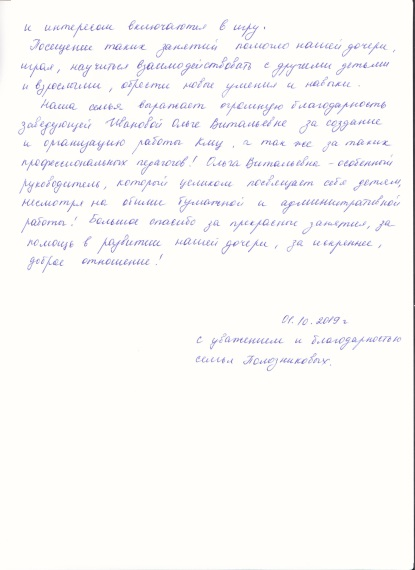 и интересом включаются в игру.
Посещение таких занятий помогло нашей дочери,
играя, научиться взаимодействовать с другими детьми
и взрослыми, обрести новые умения и навыки.
Наша семья выражает огромную благодарность
заведующей Ивановой Ольге Витальевне за создание
и организацию работы Кмц, а так же за таких
профессиональных педагогов! Ольга Витальевна - особенный
руководитель, которой целиком посвящает себя детям,
несмотря на обилие бумажной и административной
работы! Большое спасибо за прекрасные занятия, за
помощь в развитии нашей дочери, за искреннее,
доброе отношение!
01.10.2019 г
с уважением и благодарностью
семья